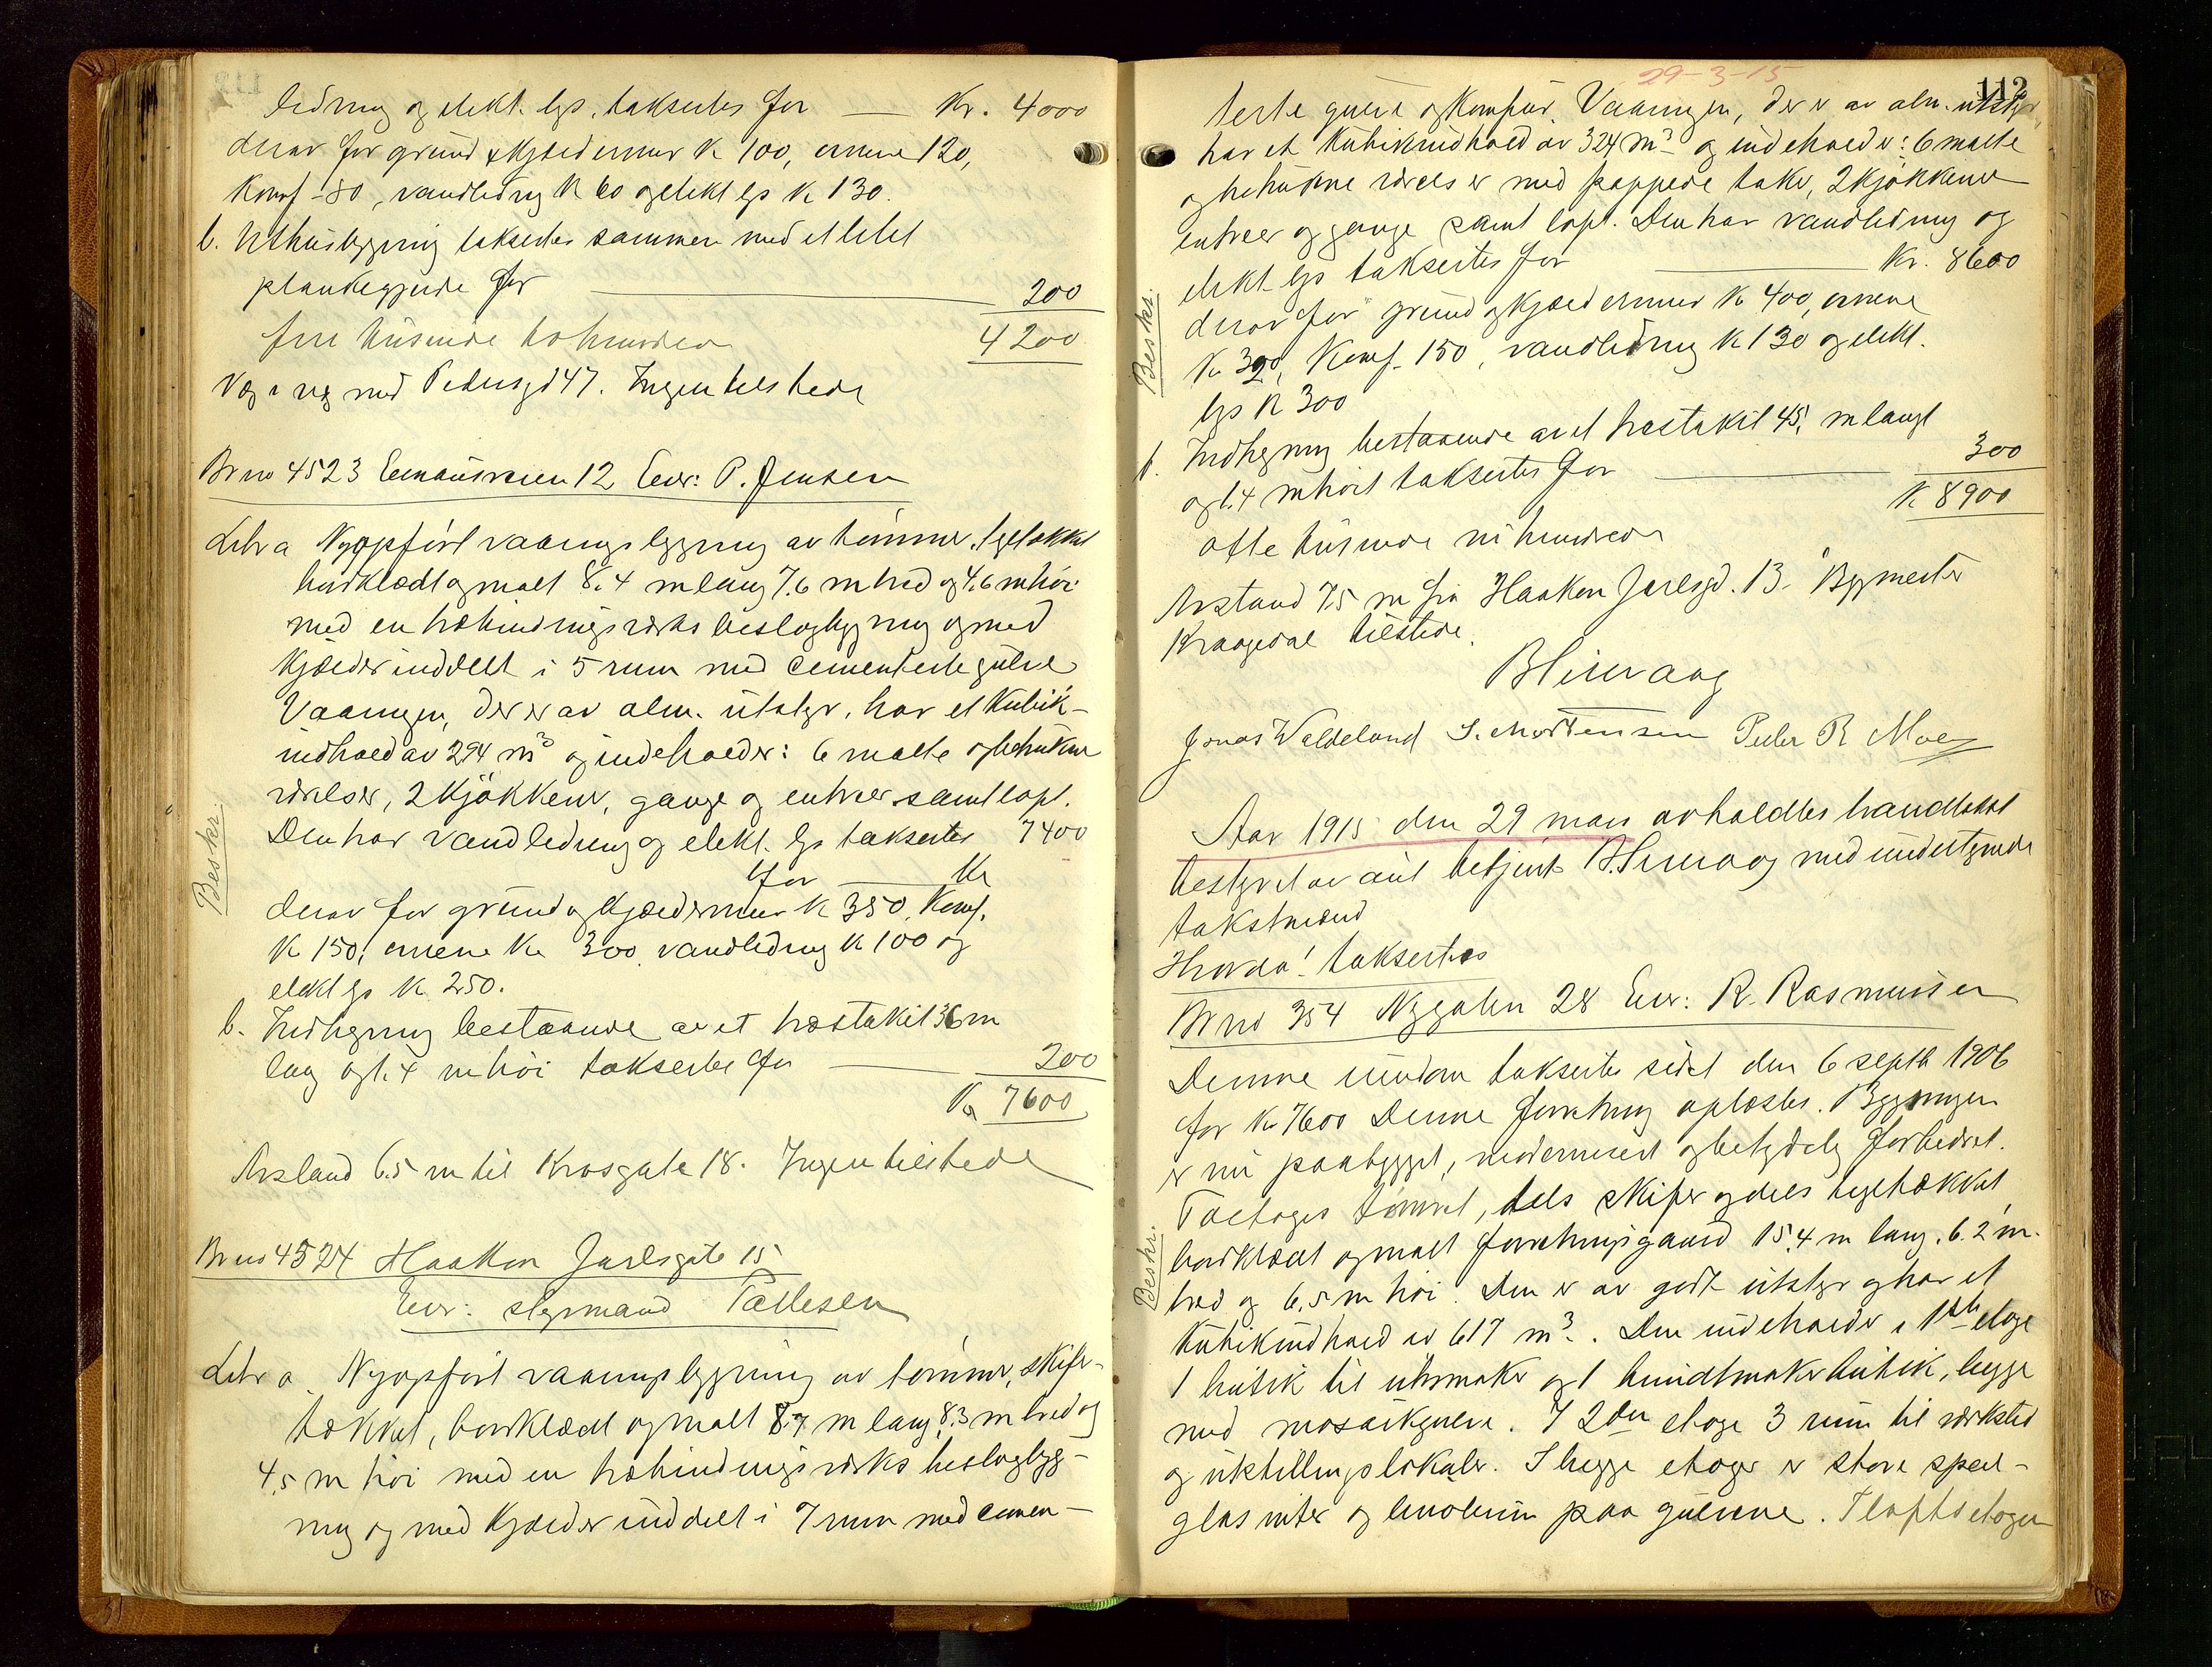 ledning og elekt. lys, taksertes for — Kr. 4000
derav for grund & kjældermur K 100, ovnene 120,
Komf - 80, vandledning K 60 og elekt lys K 130.
b. Uthusbygning taksertes sammen med et litet
plankegjerde for — 200
fire tusinde tohundrede 4200
Væg i væg med Pedersgd 47. Ingen tilstede
Br no 4523 Emausveien 12 Eier: P. Jensen
Litr a Nyopført vaaningsbygning av tømmer, tegltækket
bordklædt og malt 8.4 m lang 7.6 m bred og 4.6 m høi
med en træbindingsverks beslagbygning og med
Kjælder inddelt i 5 rum med cementerte gulve
Vaaningen, der er av alm. utstyr, har et Kubik-
indhold av 294 m³ og indeholder: 6 malte og betrukne
værelser, 2 Kjøkkener, gange og entreer samt lopt.
Den har vandledning og elekt. lys taksertes 7400
for — Kr
Beskr.
derav for grund og Kjældermur K 350, Komf.
K 150, ovnene Kr 300 vandledning K 100 og
elekt lys K 250.
b. Indhegning bestaaende av et træstakit 36 m
lang og 1.4 m høi taksertes for — 200
Kr 7600
Avstand 6.5 m til Krosgate 18. Ingen tilstede
Br no 4524 Haakon Jarlsgate 15
Eier: styrmand Tallesen
Litr a. Nyopført vaaningsbygning av tømmer, skifer-
tækket, bordklædt og malt 8.7 m lang, 8.3 m bred og
4.5 m høi med en træbindingsverks beslagbygg-
ning og med Kjælder inddelt i 7 rum med cemen-
29-3-15
112
terte gulve og Komfur. Vaaningen, der er av alm. utstyr,
har et Kubikindhold av 324 m³ og indeholder: 6 malte
og betrukne værelser med pappede take, 2 Kjøkkener
entreer og gange samt lopt. Den har vandledning og
elekt lys taksertes for — Kr. 8600
Beskr.
derav for grund og Kjældermur K 400, ovnene
K 320, Komf. 150, vandledning K 130 og elekt.
lys K 300
b. Indhegning bestaaende av et træstakit 45, m langt
og 1.4 m høit taksertes for — 300
K 8900
otte tusinde ni hundrede
Avstand 7.5 m fra Haakon Jarlsgd. 13. Bygmester
Kraagedal tilstede.
B Simvaag
Jonas Waldeland S. Mortensen Peder R Moe
Aar 1915 den 29 mars avholdtes brandtakst
bestyret av aut betjent B. Simvaag med undertegnede
takstmænd
Hvorda! taksertes
Br no 354 Nygaten 28 Eier: R. Rasmussen
Denne eiendom taksertes sidst den 6 septb 1906
for Kr 7600 Denne forretning oplæstes. Bygningen
er nu paabygget, modernisert og betydelig forbedret.
Beskr.
Toetages tømret, dels skifer og dels tegltækket
bordklædt og malt forretningsgaard 15.4 m lang, 6.2 m.
bred og 6.5 m høi. Den er av godt utstyr og har et
Kubikindhold av 617 m³. Den indeholder i 1ste etage
1 butik til uhrmaker og 1 bundtmaker butik, begge
med mosaikgulve. I 2den etage 3 rum til verksted
og utstillingslokaler. I begge etager er store speil-
glas ruter og linoleum paa gulvene. I loptsetagen